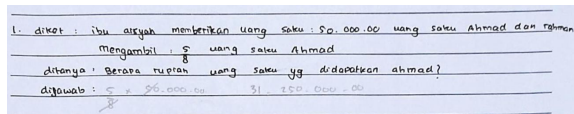 1. diket : ibu aisyah memberikan uang saku : 50.000.00 uang saku Ahmad dan rahman
mengambil : 5/8 uang saku Ahmad
ditanya : Berapa rupiah uang saku yg didapatkan ahmad?
dijawab : 5/8 x 50.000.00 31.250.000.00